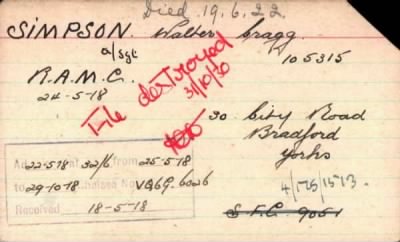 Died 19.6.22
SIMPSON. Walter Cragg.
a/Sgt 105315
R.A.M.C.
24-5-18
File destroyed
31/10/30
30 City Road
Bradford
Yorks
22-5-18 32/6 from 25-5-18
to Chelsea No
29-10-18 V96G. 6026
4/175/1513.
Received 18-5-18
S.F.C. 9051